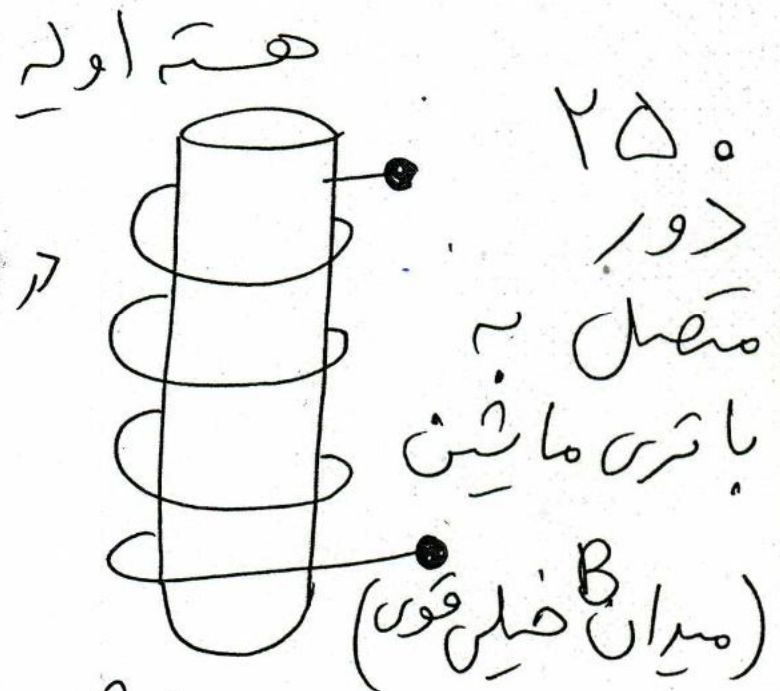 هسته اولیه
۲۵۰
دور
متصل به
باتری ماشین
(میدان B خیلی قوی)
در